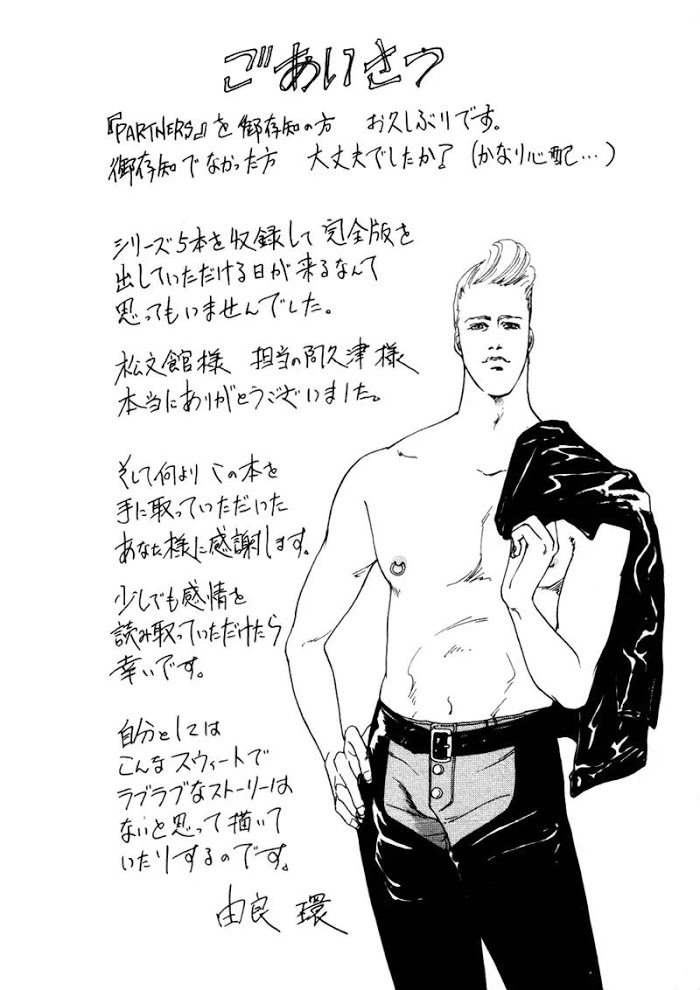 ごあいさつ
『PARTNERS』を御存知の方　お久しぶりです。
御存知でなかった方　大丈夫でしたか？（かなり心配…）
シリーズ5本を収録して完全版を
出していただける日が来るなんて
思ってもいませんでした。
松文館様　担当の阿久津様
本当にありがとうございました。
そして何より　この本を
手に取っていただいた
あなた様に感謝します。
少しでも感情を
読み取っていただけたら
幸いです。
自分としては
こんなスウィートで
ラブラブなストーリーは
ないと思って描いて
いたりするのです。
由良　環